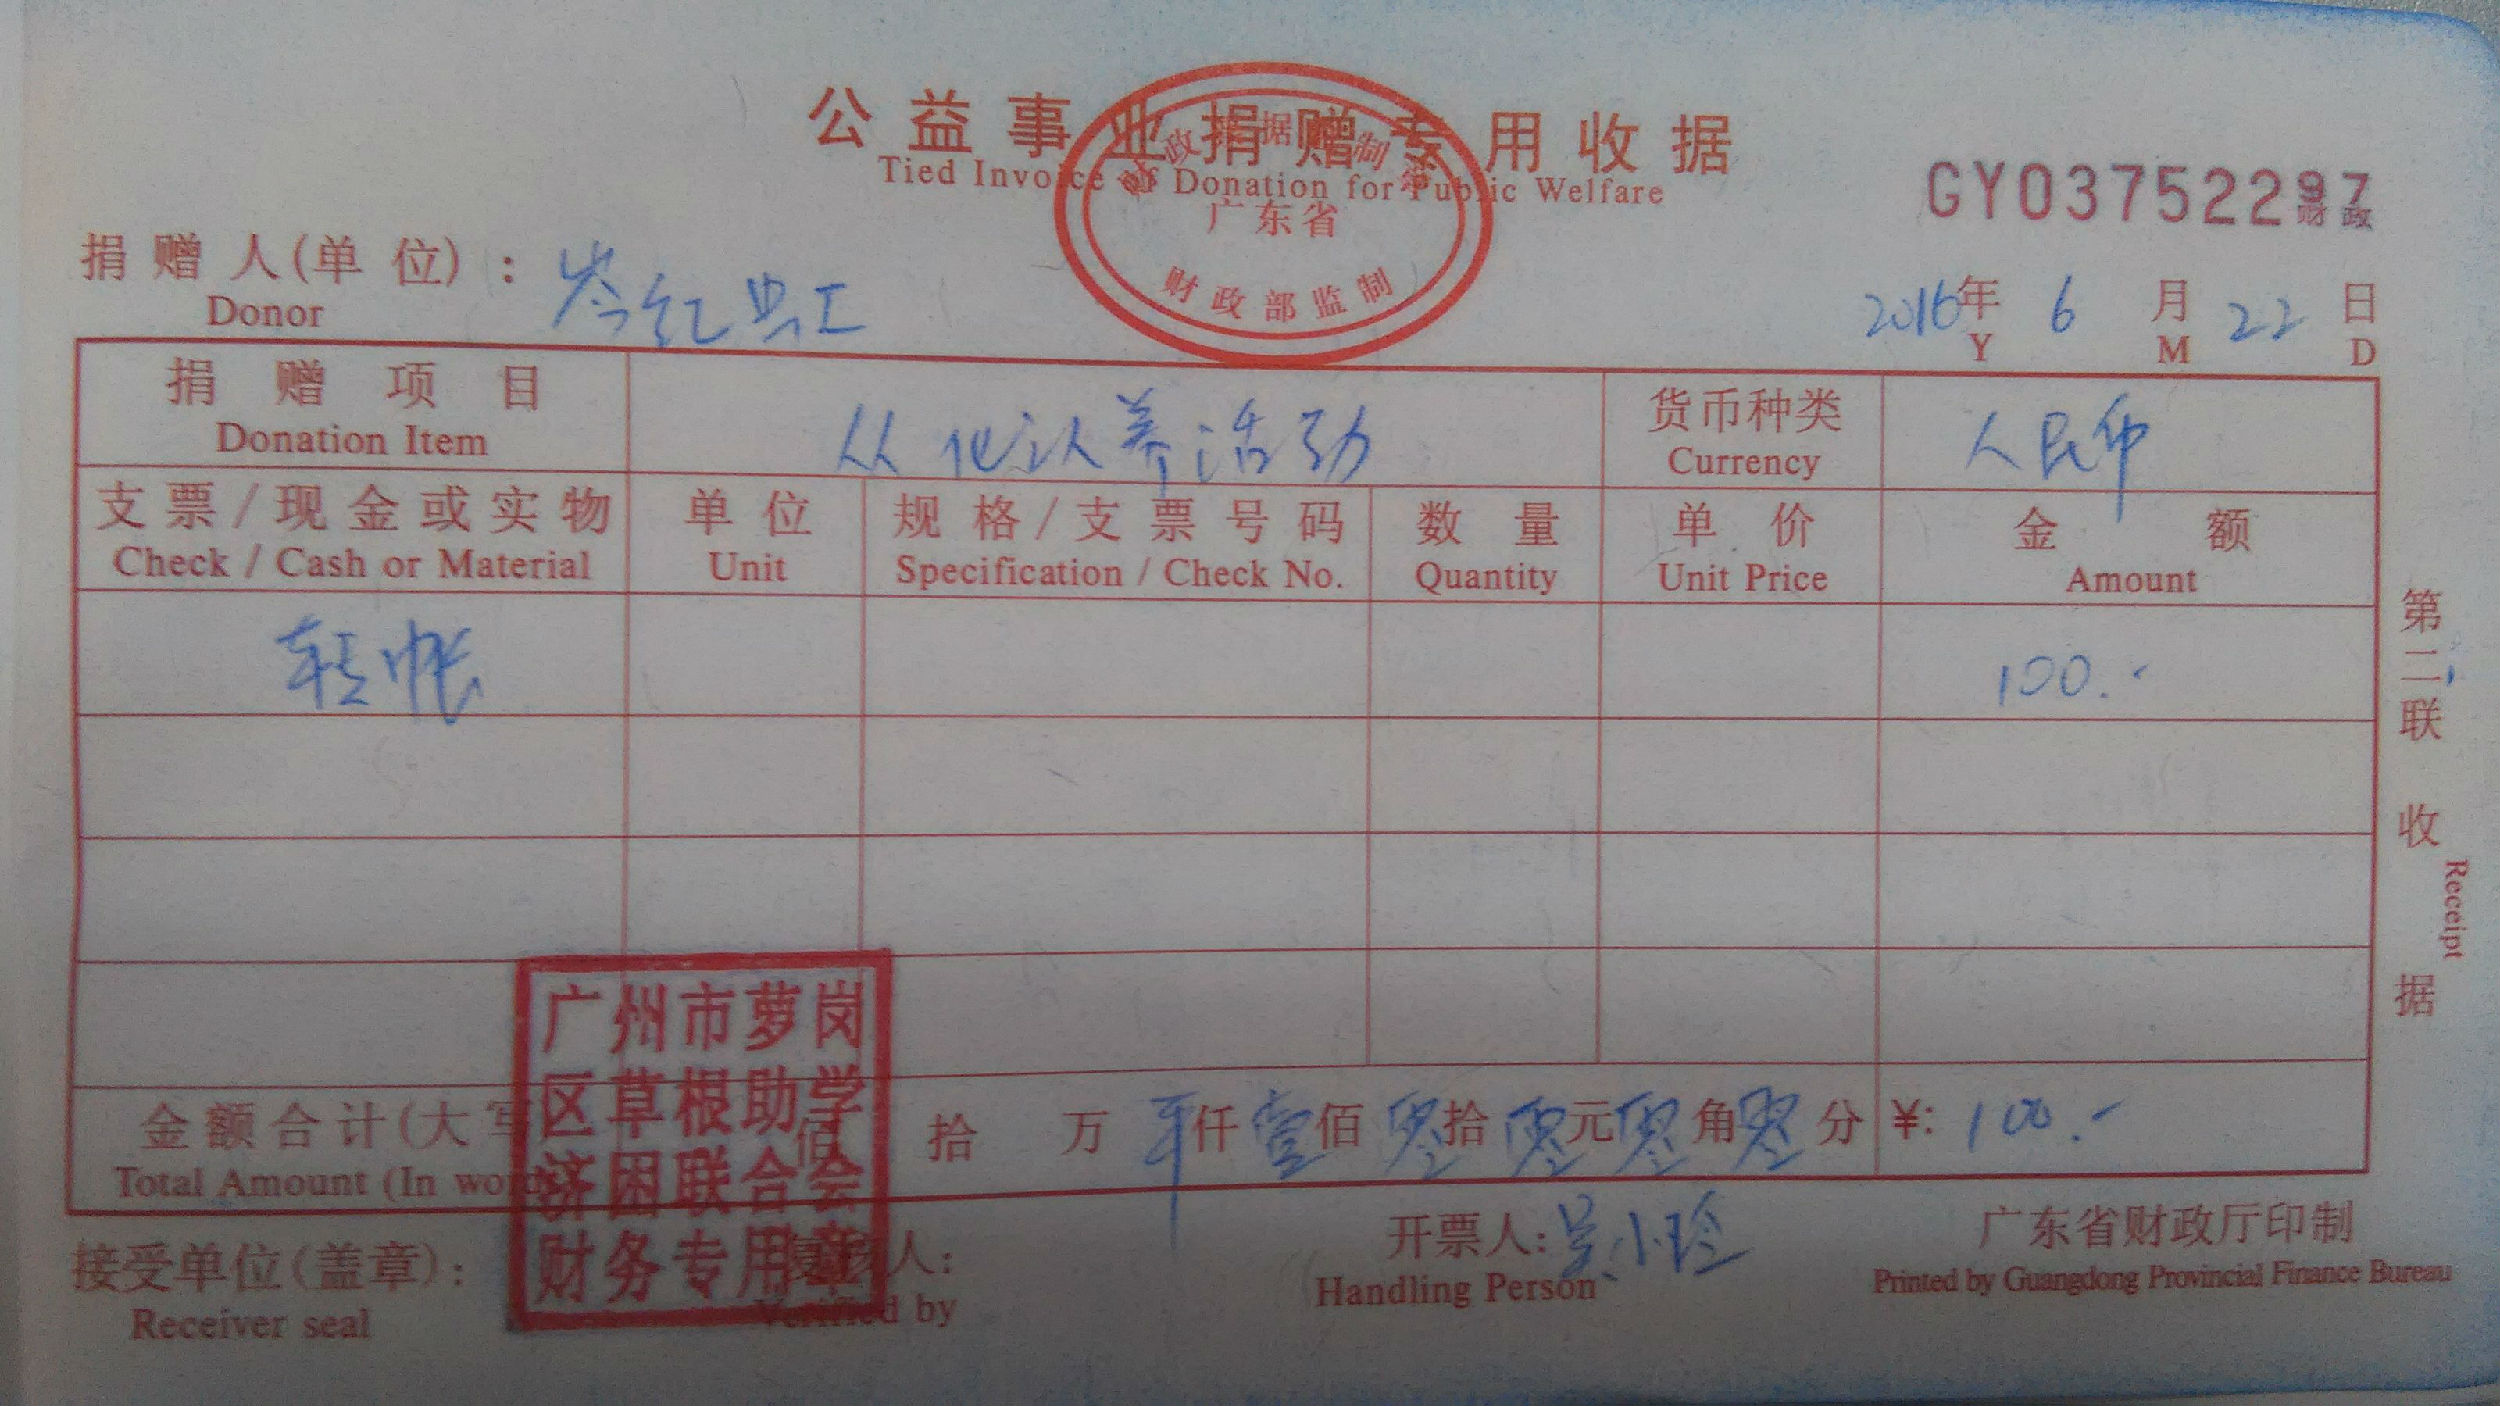 公益事业捐赠专用收据
Tied Invoice of Donation for Public Welfare
广东省
财政部监制
GY03752297
财政
捐赠人(单位):岑红
Donor
2016年 6 月 22 日
Y M D
捐赠项目 从化认养活动 货币种类 人民币
Donation Item Currency
支票/现金或实物 单位 规格/支票号码 数量 单价 金额
Check / Cash or Material Unit Specification / Check No. Quantity Unit Price Amount
转帐 100.-
金额合计(大写 佰 拾 万 仟壹佰零拾零元零角零分 ¥: 100.-
Total Amount (In words)
接受单位(盖章): 复核人: 开票人:吴小玲 广东省财政厅印制
Receiver seal Verified by Handling Person Printed by Guangdong Provincial Finance Bureau
广州市萝岗
区草根助学
济困联合会
财务专用章
第二联 收据
Receipt